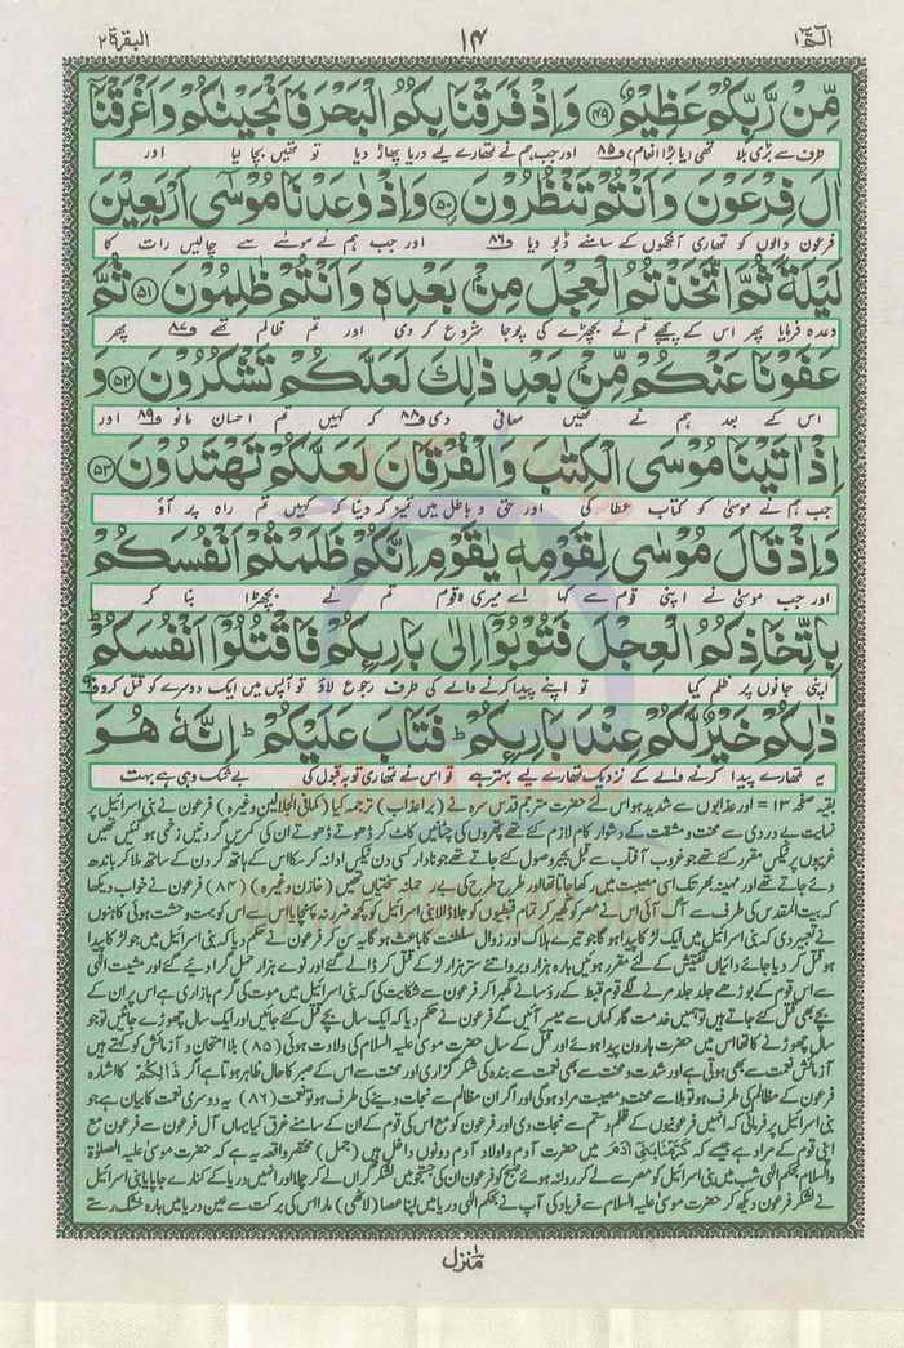 الٓمّٓ ١ ١٤ البقرة ٢
مِّنْ رَّبِّكُمْ عَظِيْمٌ ﴿۴۹﴾ وَاِذْ فَرَقْنَا بِكُمُ الْبَحْرَ فَاَنْجَيْنٰكُمْ وَاَغْرَقْنَآ
طرف سے بڑی بلا تھی (یا بڑا انعام) ف۸۵ اور جب ہم نے تمھارے لیے دریا پھاڑ دیا تو تمھیں بچا لیا اور
اٰلَ فِرْعَوْنَ وَاَنْتُمْ تَنْظُرُوْنَ ﴿۵۰﴾ وَاِذْ وٰعَدْنَا مُوْسٰٓى اَرْبَعِيْنَ
فرعون والوں کو تمھاری آنکھوں کے سامنے ڈبو دیا ف۸۶ اور جب ہم نے موسٰی سے چالیس رات کا
لَيْلَةً ثُمَّ اتَّخَذْتُمُ الْعِجْلَ مِنْۢ بَعْدِهٖ وَاَنْتُمْ ظٰلِمُوْنَ ﴿۵۱﴾ ثُمَّ
وعدہ فرمایا پھر اس کے پیچھے تم نے بچھڑے کی پوجا شروع کر دی اور تم ظالم تھے ف۸۷ پھر
عَفَوْنَا عَنْكُمْ مِّنْۢ بَعْدِ ذٰلِكَ لَعَلَّكُمْ تَشْكُرُوْنَ ﴿۵۲﴾ وَ
اس کے بعد ہم نے تمھیں معافی دی ف۸۸ کہ کہیں تم احسان مانو ف۸۹ اور
اِذْ اٰتَيْنَا مُوْسَى الْكِتٰبَ وَالْفُرْقَانَ لَعَلَّكُمْ تَهْتَدُوْنَ ﴿۵۳﴾
جب ہم نے موسٰی کو کتاب عطا کی اور حق و باطل میں تمیز کر دینا کہ کہیں تم راہ پر آؤ
وَاِذْ قَالَ مُوْسٰى لِقَوْمِهٖ يٰقَوْمِ اِنَّكُمْ ظَلَمْتُمْ اَنْفُسَكُمْ
اور جب موسٰی نے اپنی قوم سے کہا اے میری قوم تم نے بچھڑا بنا کر
بِاتِّخَاذِكُمُ الْعِجْلَ فَتُوْبُوْٓا اِلٰى بَارِىِٕكُمْ فَاقْتُلُوْٓا اَنْفُسَكُمْ ؕ
اپنی جانوں پر ظلم کیا تو اپنے پیدا کرنے والے کی طرف رجوع لاؤ تو آپس میں ایک دوسرے کو قتل کرو ف۹۰
ذٰلِكُمْ خَيْرٌ لَّكُمْ عِنْدَ بَارِىِٕكُمْ ؕ فَتَابَ عَلَيْكُمْ ؕ اِنَّهٗ هُوَ
یہ تمھارے پیدا کرنے والے کے نزدیک تمھارے لیے بہتر ہے تو اس نے تمھاری توبہ قبول کی بے شک وہی ہے بہت
بقیہ صفحہ ۱۳ = اور عذابوں سے شدید ہو اس لئے حضرت مترجم قدس سرہ نے (برا عذاب) ترجمہ کیا (کمافی الجلالین وغیرہ) فرعون نے بنی اسرائیل پر
نہایت بے دردی سے محنت و مشقت کے دشوار کام لازم کئے تھے پتھروں کی چٹانیں کاٹ کر ڈھوتے ڈھوتے ان کی کمریں گردنیں زخمی ہو گئیں تھیں
غریبوں پر ٹیکس مقرر کئے تھے جو غروب آفتاب سے قبل بجبر وصول کئے جاتے تھے جو نادار کسی دن ٹیکس ادا نہ کر سکا اس کے ہاتھ گردن کے ساتھ ملا کر باندھ
دئے جاتے تھے اور مہینہ بھر تک اسی مصیبت میں رکھا جاتا تھا اور طرح طرح کی بے رحمانہ سختیاں تھیں (خازن وغیرہ) (۸۴) فرعون نے خواب دیکھا
کہ بیت المقدس کی طرف سے آگ آئی اس نے مصر کو گھیر کر تمام قبطیوں کو جلا ڈالا بنی اسرائیل کو کچھ ضرر نہ پہنچایا اس سے اس کو بہت وحشت ہوئی کاہنوں
نے تعبیر دی کہ بنی اسرائیل میں ایک لڑکا پیدا ہو گا جو تیرے ہلاک اور زوال سلطنت کا باعث ہو گا یہ سن کر فرعون نے حکم دیا کہ بنی اسرائیل میں جو لڑکا پیدا
ہو قتل کر دیا جائے دائیاں تفتیش کے لئے مقرر ہوئیں بارہ ہزار و بروایتے ستر ہزار لڑکے قتل کر ڈالے گئے اور نوے ہزار حمل گرا دیئے گئے اور مشیت الٰہی
سے اس قوم کے بوڑھے جلد جلد مرنے لگے قوم قبط کے رؤسا نے گھبرا کر فرعون سے شکایت کی کہ بنی اسرائیل میں موت کی گرم بازاری ہے اس پر ان کے
بچے بھی قتل کئے جاتے ہیں تو ہمیں خدمت گار کہاں سے میسر آئیں گے فرعون نے حکم دیا کہ ایک سال بچے قتل کئے جائیں اور ایک سال چھوڑے جائیں تو جو
سال چھوڑنے کا تھا اس میں حضرت ہارون پیدا ہوئے اور قتل کے سال حضرت موسیٰ علیہ السلام کی ولادت ہوئی (۸۵) بلا امتحان و آزمائش کو کہتے ہیں
آزمائش نعمت سے بھی ہوتی ہے اور شدت و محنت سے بھی نعمت سے بندہ کی شکر گزاری اور محنت سے اس کے صبر کا حال ظاہر ہوتا ہے اگر ذَالِكُمْ کا اشارہ
فرعون کے مظالم کی طرف ہو تو بلا سے محنت و مصیبت مراد ہو گی اور اگر ان مظالم سے نجات دینے کی طرف ہو تو نعمت (۸۶) یہ دوسری نعمت کا بیان ہے جو
بنی اسرائیل پر فرمائی کہ انہیں فرعونیوں کے ظلم و ستم سے نجات دی اور فرعون کو مع اس کی قوم کے ان کے سامنے غرق کیا یہاں آل فرعون سے فرعون مع
اپنی قوم کے مراد ہے جیسے کہ كَرَّمْنَا بَنِىْٓ اٰدَمَ میں حضرت آدم و اولاد آدم دونوں داخل ہیں (جمل) مختصر واقعہ یہ ہے کہ حضرت موسیٰ علیہ الصلوٰۃ
والسلام بحکم الٰہی شب میں بنی اسرائیل کو مصر سے لے کر روانہ ہوئے صبح کو فرعون ان کی جستجو میں لشکر گراں لے کر چلا اور انہیں دریا کے کنارے جا پایا بنی اسرائیل
نے لشکر فرعون دیکھ کر حضرت موسیٰ علیہ السلام سے فریاد کی آپ نے بحکم الٰہی دریا میں اپنا عصا (لاٹھی) مارا اس کی برکت سے عین دریا میں بارہ خشک رستے
منزل ١